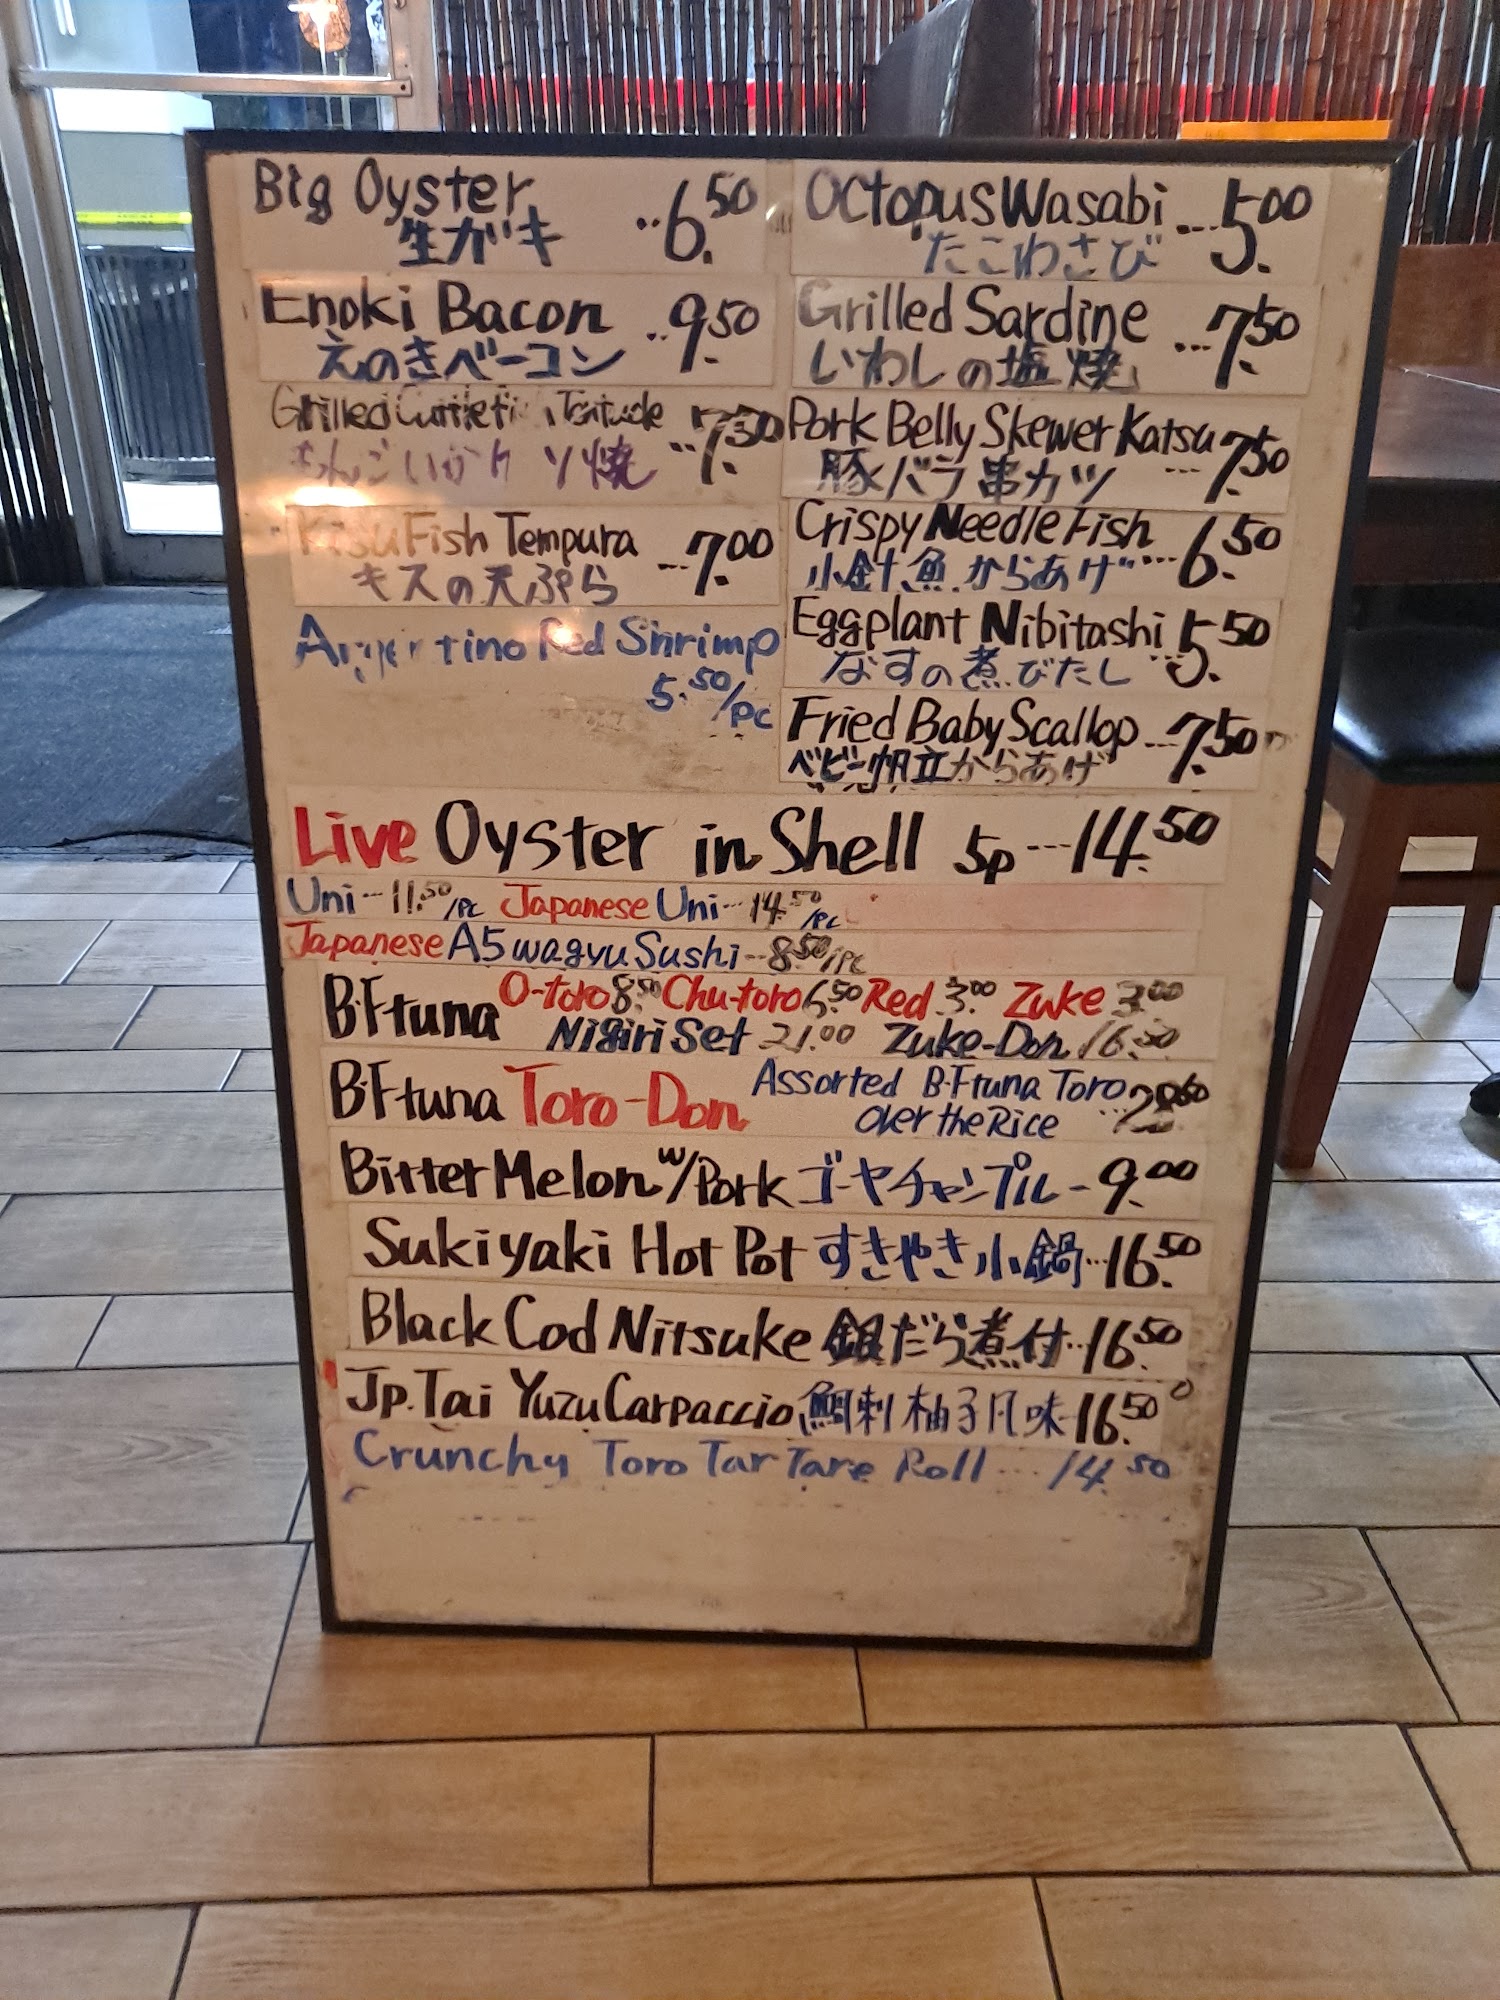 Big Oyster ..6.50
生ガキ
Enoki Bacon ..9.50
えのきベーコン
Grilled ...7.50
焼
Kisu Fish Tempura ...7.00
キスの天ぷら
Argentino Red Shrimp
5.50/pc
Octopus Wasabi ...5.00
たこわさび
Grilled Sardine ...7.50
いわしの塩焼
Pork Belly Skewer Katsu
豚バラ串カツ ...7.50
Crispy Needle Fish
小針魚からあげ ...6.50
Eggplant Nibitashi ...5.50
なすの煮びたし
Fried Baby Scallop ...7.50
ベビー帆立からあげ
Live Oyster in Shell 5p ...14.50
Uni ... 11.50/pc Japanese Uni ... 14.50/pc
Japanese A5 wagyu Sushi ... 8.50/pc
B.Ftuna O-toro 8.50 Chu-toro 6.50 Red 3.00 Zuke 3.00
Nigiri Set 21.00 Zuke-Don 16.50
B.Ftuna Toro-Don Assorted B.Ftuna Toro
over the Rice
Bitter Melon w/Pork ゴーヤチャンプル - 9.00
Sukiyaki Hot Pot すきやき小鍋 ...16.50
Black Cod Nitsuke 銀だら煮付 ..16.50
Jp. Tai Yuzu Carpaccio 鯛刺柚子風味 16.50
Crunchy Toro Tar Tare Roll ... 14.50